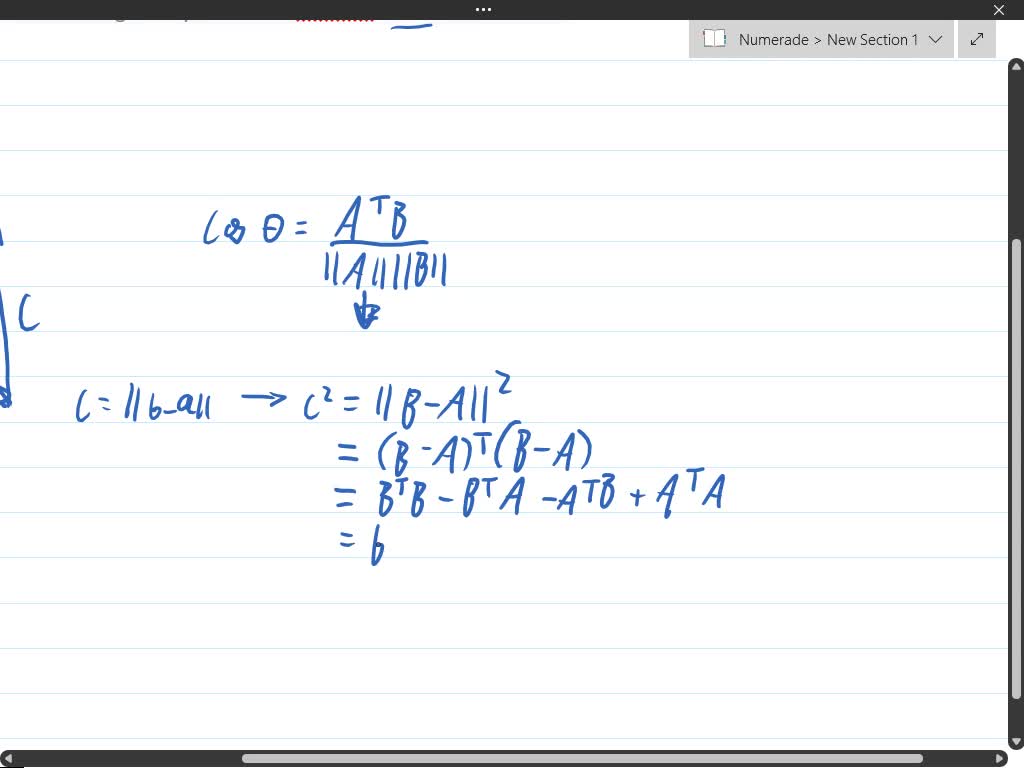 Numerade > New Section 1
Cos θ = AᵀB / ||A|| ||B||
C
C = ||b-a|| → C² = ||B-A||²
= (B-A)ᵀ(B-A)
= BᵀB - BᵀA - AᵀB + AᵀA
= b